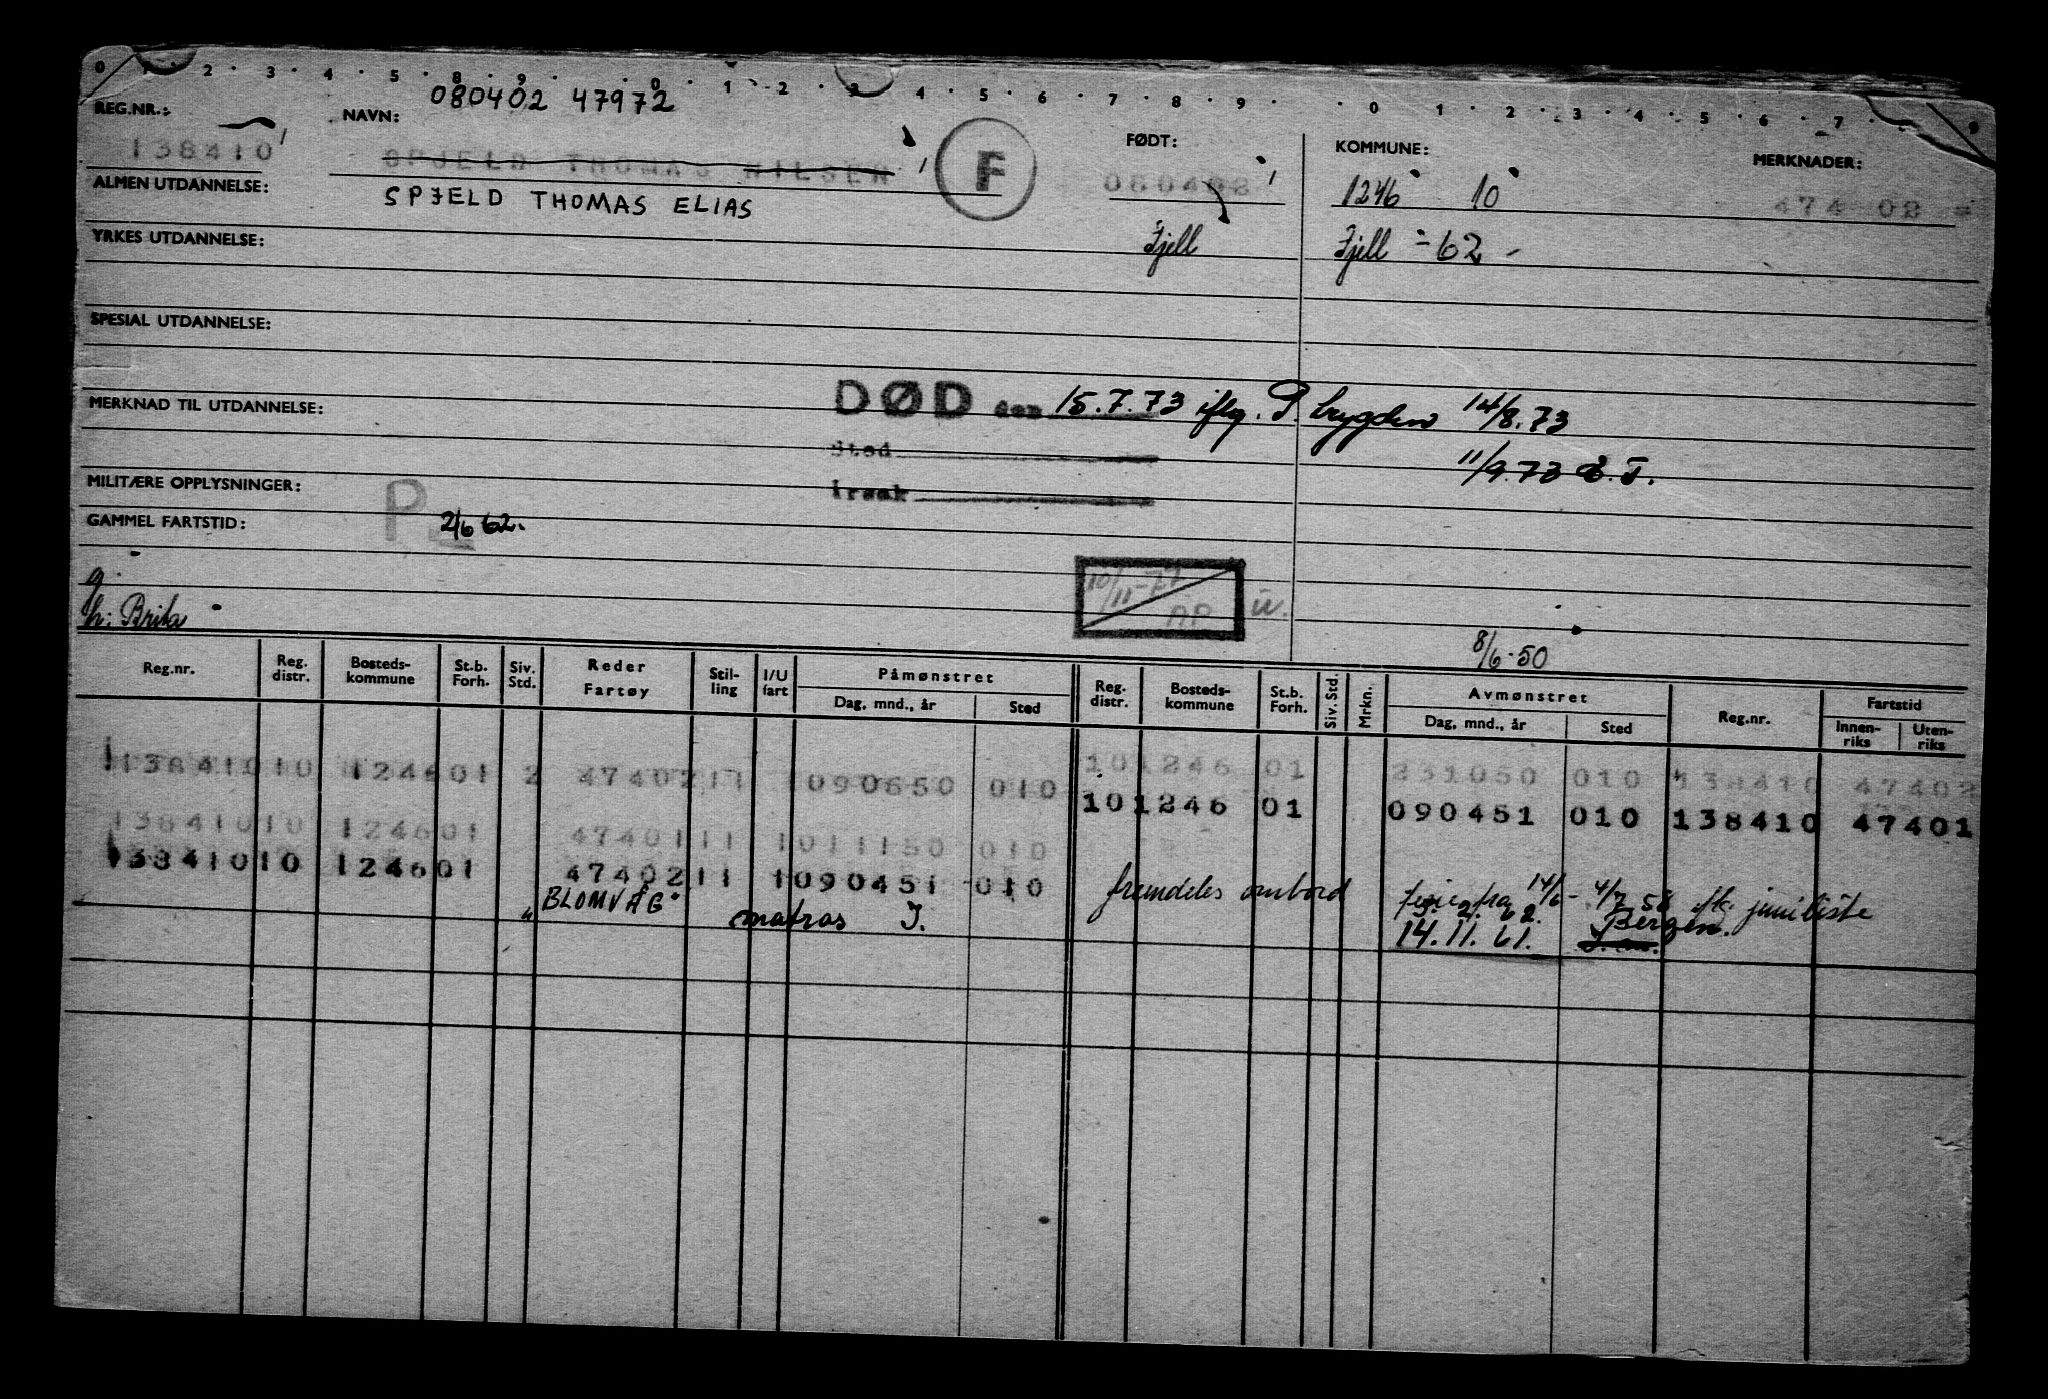 0 1 2 3 4 5 8 9 0 1 2 3 4 5 6 7 8 9 0 1 2 3 4 5 6 7 9
080402 47972
REG.NR.: NAVN: FØDT: KOMMUNE: MERKNADER:
138410 SPJELD THOMAS NILSEN F 080402 1246 10 474 02
ALMEN UTDANNELSE: SPJELD THOMAS ELIAS
YRKES UTDANNELSE: Fjell Fjell - 62 -
SPESIAL UTDANNELSE:
MERKNAD TIL UTDANNELSE: DØD den 15.7.73 iflg. P. trygden 14/8.73
Sted 11/9.73 E.T.
MILITÆRE OPPLYSNINGER: P årsak
GAMMEL FARTSTID: 2/6 62.
10/11-77 AP ü.
g.
h: Brita
8/6-50
Reg.nr. Reg. distr. Bosteds-kommune St.b. Forh. Siv. Std. Reder Fartøy Stil-ling I/U fart Påmønstret Dag, mnd., år Sted Reg. distr. Bosteds-kommune St.b. Forh. Siv. Std. Mrkn. Avmønstret Dag, mnd., år Sted Reg.nr. Fartstid Innen-riks Uten-riks
13841010 124601 2 4740211 1090650 010 101246 01 231050 010 138410 47402
13841010 124601 4740111 1011150 010 101246 01 090451 010 138410 47401
13841010 124601 4740211 1090451 010 fremdeles ombord ferie fra 14/6 - 4/7 58 iflg juniliste
"BLOMVÅG" matros I. 3. 2. 62. Bergen.
14. 11. 61.